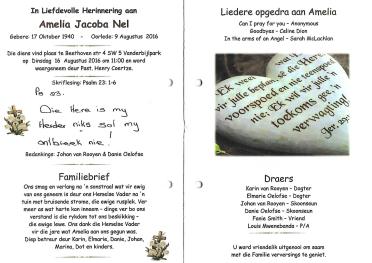 In Liefdevolle Herinnering aan
Amelia Jacoba Nel
Gebore: 17 Oktober 1940 - Oorlede: 9 Augustus 2016
Die diens vind plaas te Beethoven str 4 SW 5 Vanderbijlpark
op Dinsdag 16 Augustus 2016 om 11:00 en word
waargeneem deur Past. Henry Coertze.
Skriflesing: Psalm 23: 1-6
Ps 23.
Die Here is my
Herder niks sal my
ontbreek nie.
Bedankings: Johan van Rooyen & Danie Oelofse
Familiebrief
Ons smag en verlang na 'n sonstraal wat vir ewig
van ons geneem is deur ons Hemelse Vader na 'n
tuin met bruisende strome, die ewige rusplek. Ver
meer as wat harte kan inneem - dinge ver bo ons
verstand is die rykdom tot ons beskikking -
die ewige lewe. Ons dank die Hemelse Vader
vir die jare wat Amelia aan ons gegun was.
Diep betreur deur Karin, Elmarie, Danie, Johan,
Marina, Dot en kinders.
Liedere opgedra aan Amelia
Can I pray for you – Anonymous
Goodbyes – Celine Dion
In the arms of an Angel – Sarah McLachlan
Ek weet wat
vir julle beplan, sê die Here:
voorspoed en nie teenspoed
nie. Ek wil vir julle 'n
toekoms gee 'n
verwagting!
Jer. 29:
Draers
Karin van Rooyen – Dogter
Elmarie Oelofse – Dogter
Johan van Rooyen – Skoonseun
Danie Oelofse – Skoonseun
Fanie Smith – Vriend
Louis Mwanebanda – P/A
U word vriendelik uitgenooi om saam
met die Familie verversings te geniet.